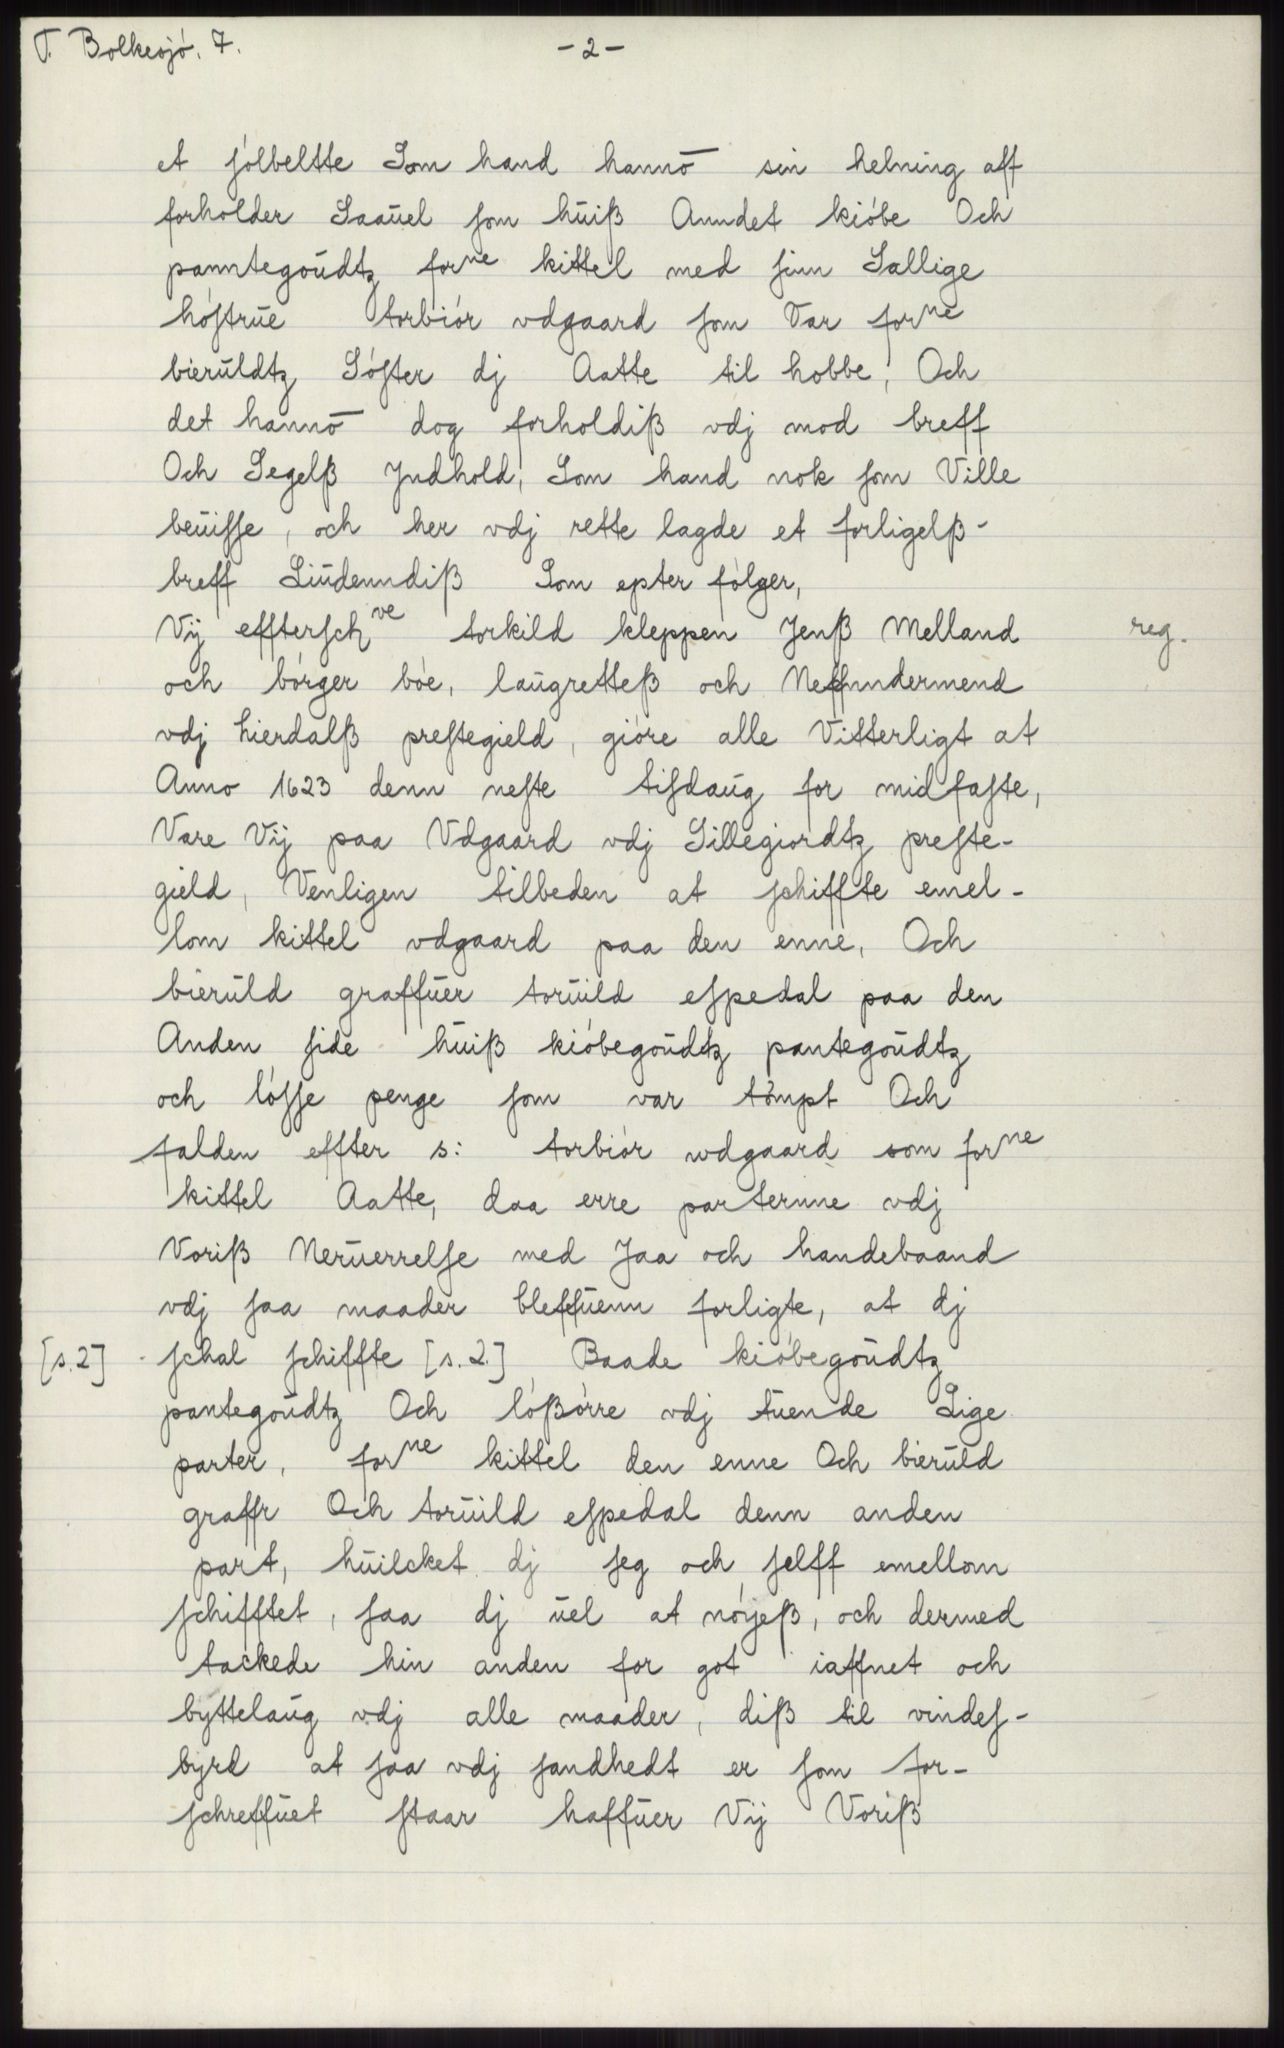 T. Bolkesjó. 7.
- 2 -
et sólbeltte Som hand hannō sin helning aff
forholder Saaūel som hūiß Anndet kióbe Och
panntegoūdtz for<sup>ne</sup> kittel med sinn Sallige
hóstrūe torbiór vdgaard som Var for<sup>ne</sup>
bierūldtz Sóster dj Aatte til hobbe, Och
det hannō dog forholdiß vdj mod breff
Och Segelß Jndhold, Som hand nok som Ville
beūisse, och her vdj rette lagde et forligelß-
breff Liūdenndiß Som epter fólger,
Vij efftersch<sup>ne</sup> torkild kleppen Jenß Melland
reg.
och bórger bóe, laūgretteß och Neffundermend
vdj hierdalß prestegield, gióre alle Vitterligt at
Anno 1623 denn neste tisdaūg for midfaste,
Vare Vij paa Vdgaard vdj Sillegiordtz preste-
gield, Venligen tilbeden at schiffte emel-
lom kittel vdgaard paa den enne, Och
bierūld graffūer torūild espedal paa den
Anden side hūiß kióbegoūdtz pantegoūdtz
och lósse penge som var tómpt Och
falden effter s: torbiór wdgaard som for<sup>ne</sup>
kittel Aatte, daa erre parternne vdj
Voriß Nerūerrelse med Jaa och handebaand
vdj saa maader bleffūenn forligte, at dj
[s.2] schal schiffte [s.2.] Baade kióbegoūdtz
pantegoūdtz Och lóßórre vdj tūende Lige
parter, for<sup>ne</sup> kittel den enne Och bierūld
graffr Och torūild espedal denn anden
part, hūilcket dj seg och selff emellom
schifftet, saa dj ūel at nóyeß, och dermed
tackede hin anden for got iaffnet och
byttelaūg vdj alle maader, diß til vindes-
byrd at saa vdj sandhedt er som for-
schreffūet staar haffūer Vij Voriß